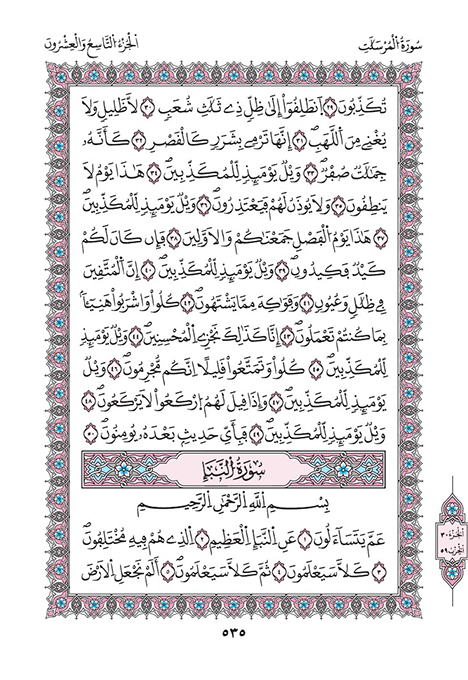 سُورَةُ الْمُرْسَلَٰتِ
اَلْجُزْءُ التَّاسِعُ وَالْعِشْرُونَ
تُكَذِّبُونَ ٢٩ اَنطَلِقُوٓاْ إِلَىٰ ظِلّٖ ذِے ثَلَٰثِ شُعَبٖ ٣٠ لَّا ظَلِيلٖ وَلَا
يُغْنِے مِنَ اَللَّهَبِ ٣١ إِنَّهَا تَرْمِے بِشَرَرٖ كَالْقَصْرِ ٣٢ كَأَنَّهُۥ
جِمَٰلَٰتٞ صُفْرٞ ٣٣ وَيْلٞ يَوْمَئِذٖ لِّلْمُكَذِّبِينَ ٣٤ هَٰذَا يَوْمُ لَا
يَنطِقُونَ ٣٥ وَلَا يُوذَنُ لَهُمْ فَيَعْتَذِرُونَ ٣٦ وَيْلٞ يَوْمَئِذٖ لِّلْمُكَذِّبِينَ
٣٧ هَٰذَا يَوْمُ اُلْفَصْلِ جَمَعْنَٰكُمْ وَالَاوَّلِينَ ٣٨ فَإِن كَانَ لَكُمْ
كَيْدٞ فَكِيدُونِ ٣٩ وَيْلٞ يَوْمَئِذٖ لِّلْمُكَذِّبِينَ ٤٠ إِنَّ اَلْمُتَّقِينَ
فِے ظِلَٰلٖ وَعُيُونٖ ٤١ وَفَوَٰكِهَ مِمَّا يَشْتَهُونَ ٤٢ كُلُواْ وَاشْرَبُواْ هَنِيٓـٔاَۢ
بِمَا كُنتُمْ تَعْمَلُونَ ٤٣ إِنَّا كَذَٰلِكَ نَجْزِے اِلْمُحْسِنِينَ ٤٤ وَيْلٞ يَوْمَئِذٖ
لِّلْمُكَذِّبِينَ ٤٥ كُلُواْ وَتَمَتَّعُواْ قَلِيلًا اِنَّكُم مُّجْرِمُونَ ٤٦ وَيْلٞ
يَوْمَئِذٖ لِّلْمُكَذِّبِينَ ٤٧ وَإِذَا قِيلَ لَهُمُ اُرْكَعُواْ لَا يَرْكَعُونَ ٤٨
وَيْلٞ يَوْمَئِذٖ لِّلْمُكَذِّبِينَ ٤٩ فَبِأَيِّ حَدِيثِۢ بَعْدَهُۥ يُومِنُونَ ٥٠
سُورَةُ النَّبَإِ
بِسْمِ اِللَّهِ اِلرَّحْمَٰنِ اِلرَّحِيمِ
عَمَّ يَتَسَآءَلُونَ ١ عَنِ اِلنَّبَإِ اِلْعَظِيمِ ٢ اِلذِے هُمْ فِيهِ مُخْتَلِفُونَ
٣ كَلَّا سَيَعْلَمُونَ ٤ ثُمَّ كَلَّا سَيَعْلَمُونَ ٥ أَلَمْ نَجْعَلِ اِلَارْضَ
اَلْجُزْءُ ٣٠
اَلْحِزْبُ ٥٩
٥٣٥